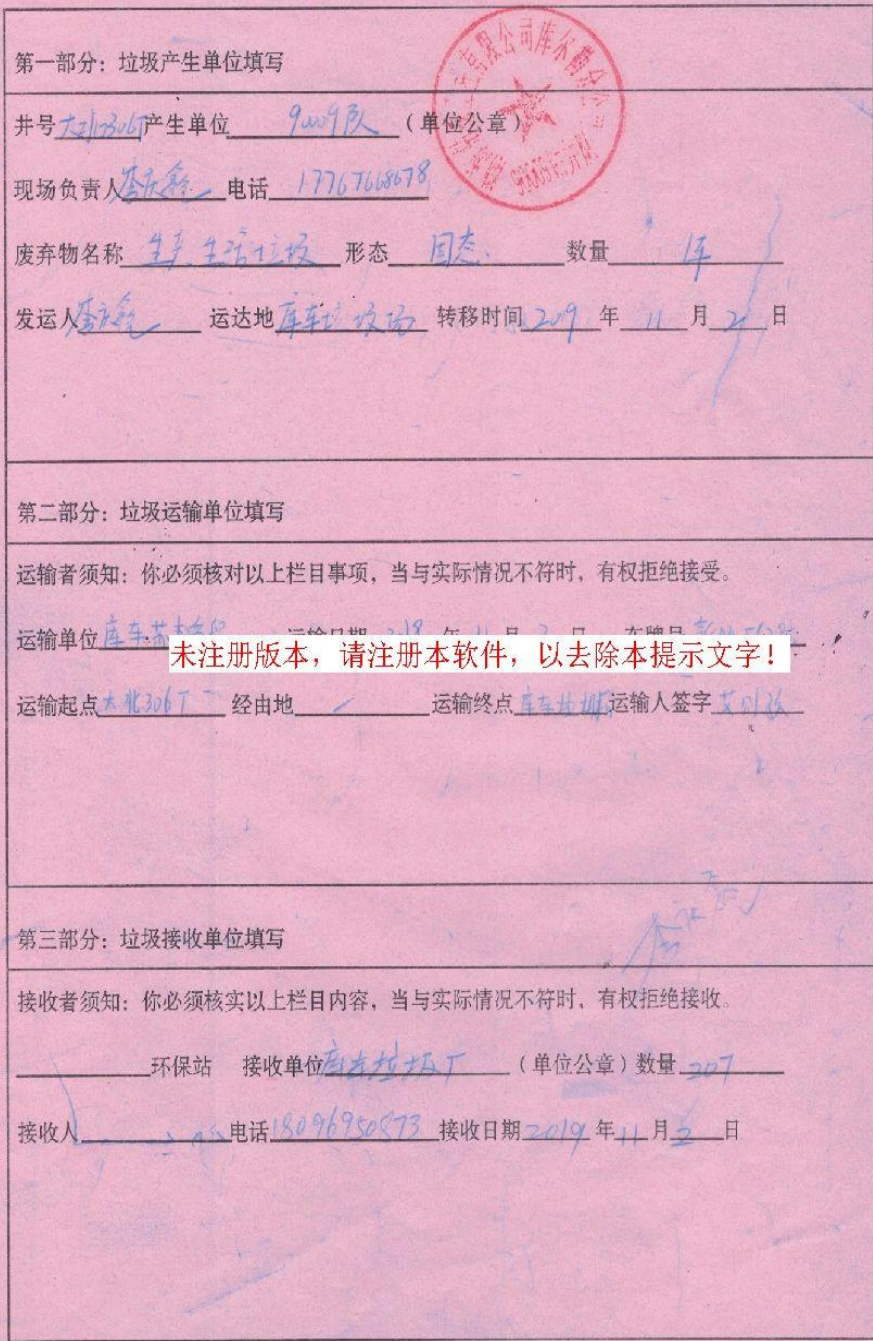 第一部分：垃圾产生单位填写
井号 产生单位 （单位公章）
现场负责人 电话 17767668678
废弃物名称 生产、生活垃圾 形态 固态 数量 车
发运人 运达地 库车垃圾场 转移时间 2019 年 11 月 2 日
第二部分：垃圾运输单位填写
运输者须知：你必须核对以上栏目事项，当与实际情况不符时，有权拒绝接受。
运输单位 库车 运输日期 年 11 月 2 日 车牌号
未注册版本，请注册本软件，以去除本提示文字！
运输起点 大北306T 经由地 运输终点 运输人签字
第三部分：垃圾接收单位填写
接收者须知：你必须核实以上栏目内容，当与实际情况不符时，有权拒绝接收。
环保站 接收单位 库车垃圾厂 （单位公章）数量
接收人 电话 18096950873 接收日期 2019 年 11 月 2 日